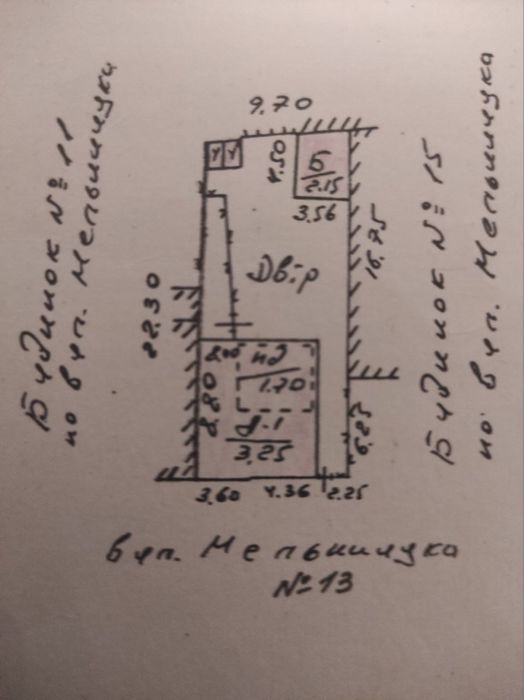 Будинок № 11
по вул. Мельничука
9.70
У У
4.50
Б
2.15
3.56
Будинок № 15
по вул. Мельничука
16.75
Двір
22.30
8.00
пд
1.70
8.80
3.25
6.87
3.60 4.36 2.25
вул. Мельничука
№ 13